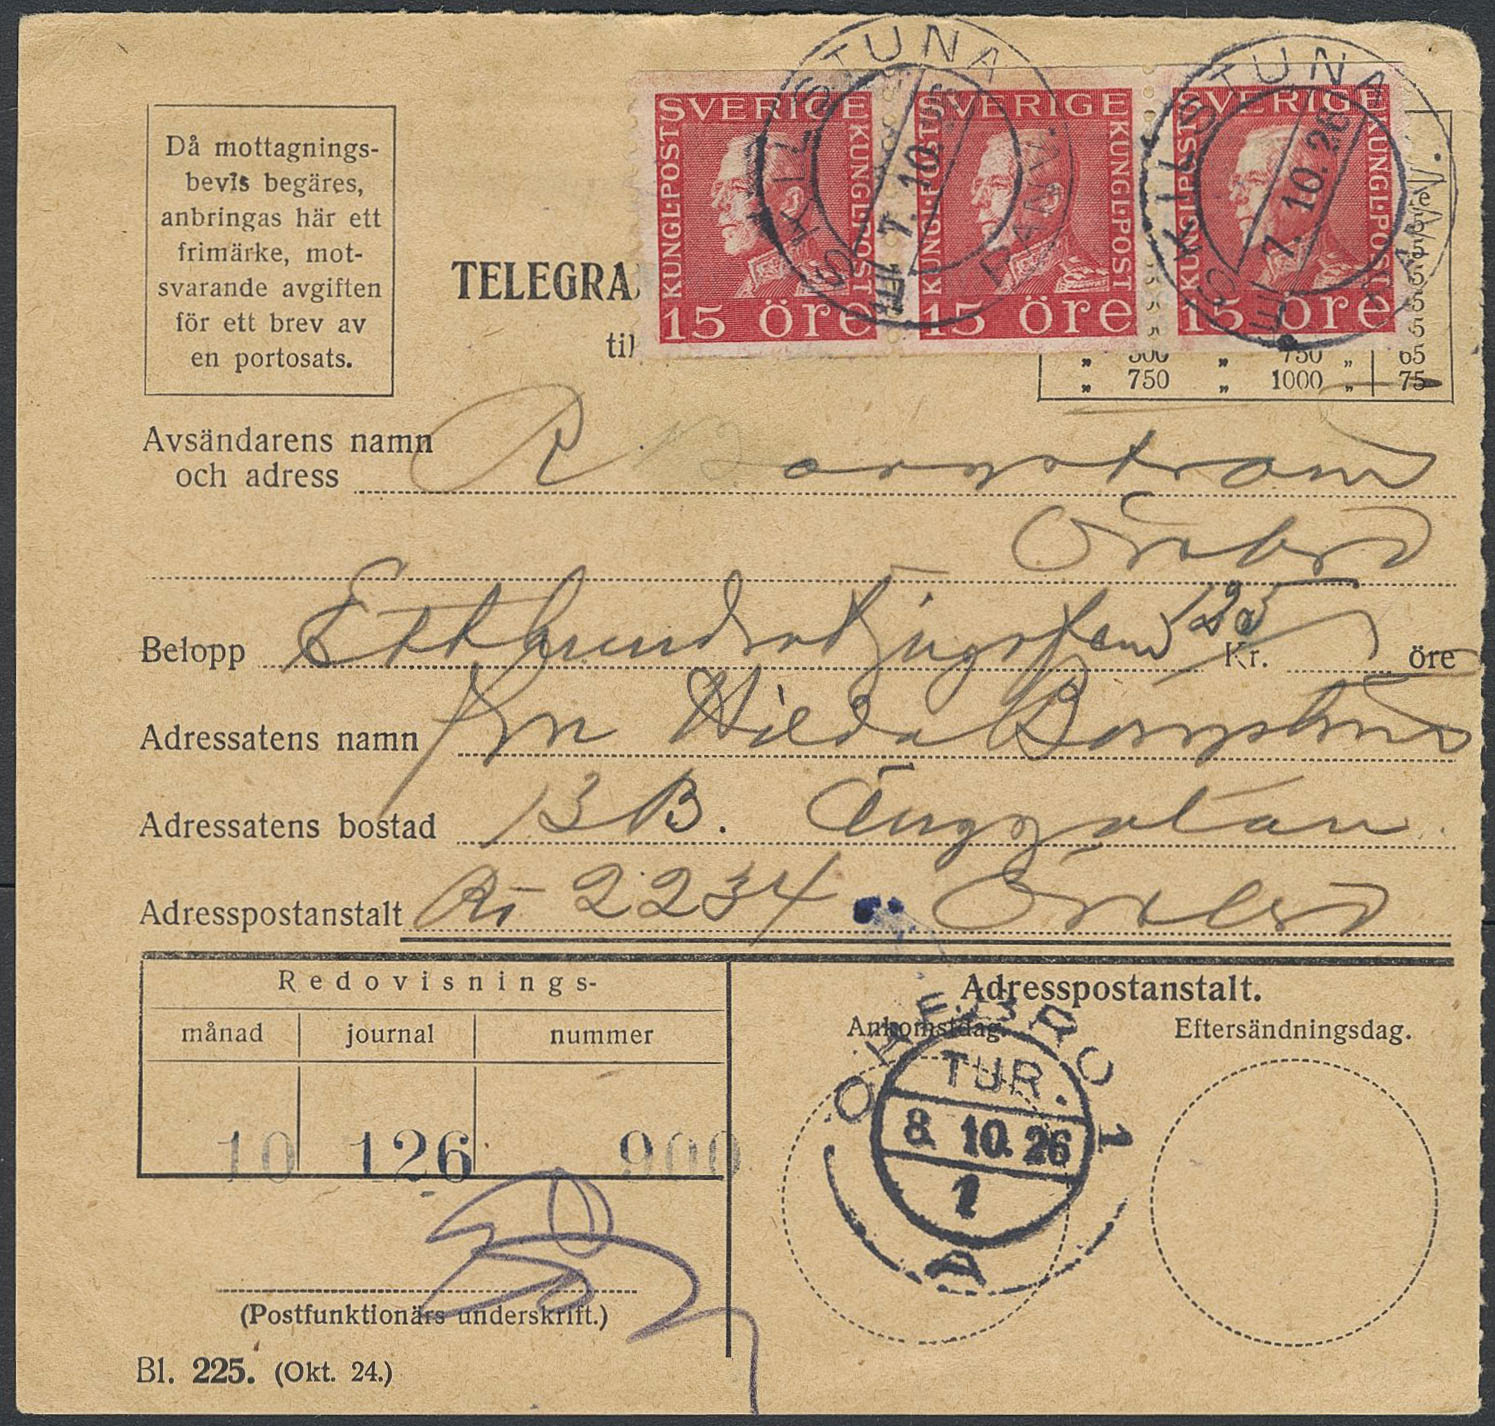 ESKILSTUNA
7. 10. 26
AVG.
ESKILSTUNA
7. 10. 26
AVG.
SVERIGE
KUNGL·POST
KUNGL·POST
15 öre
SVERIGE
KUNGL·POST
KUNGL·POST
15 öre
SVERIGE
KUNGL·POST
KUNGL·POST
15 öre
Då mottagnings-
bevis begäres,
anbringas här ett
frimärke, mot-
svarande avgiften
för ett brev av
en portosats.
TELEGRA
til
„ 500 „ 750 „ 65
„ 750 „ 1000 „ 75
Avsändarens namn R Borgström
och adress
Örebro
Belopp Etthundratjugofem 125 Kr. öre
Adressatens namn Fru Hilda Borgström
Adressatens bostad 13 B. Änggatan
Adresspostanstalt 2234 Örebro
Redovisnings-
månad journal nummer
10 126 900
(Postfunktionärs underskrift.)
Bl. 225. (Okt. 24.)
Adresspostanstalt.
Ankomstdag. Eftersändningsdag.
OREBRO 1
TUR.
8. 10. 26
1
A